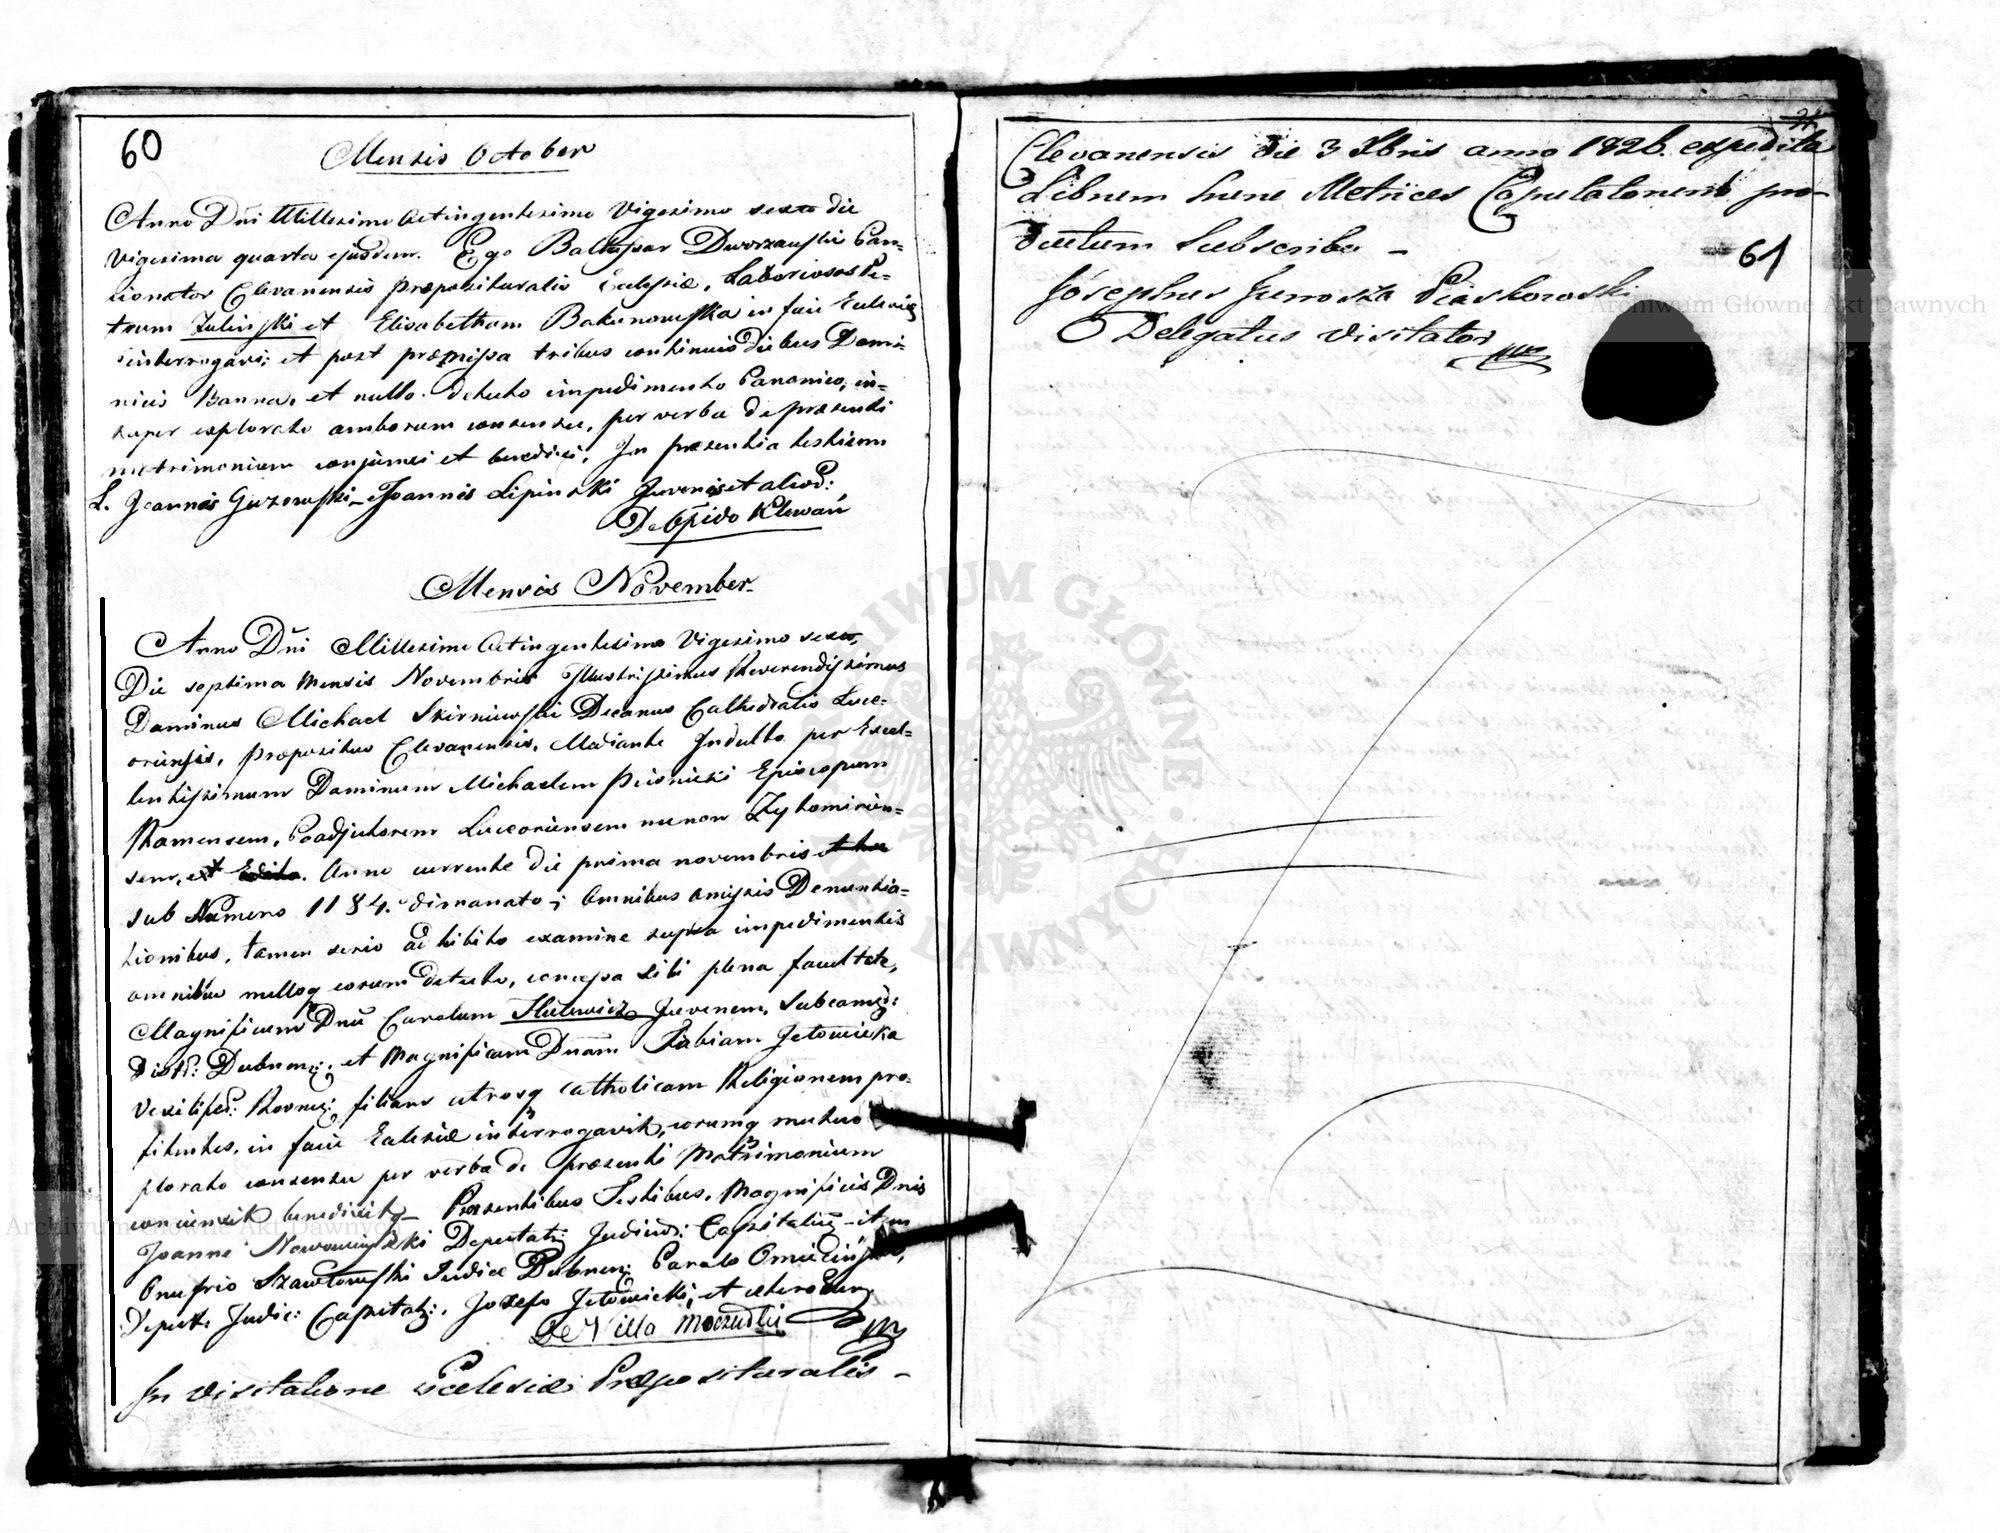 60
Mensis October
Anno Dñi Millesimo Octingentesimo Vigesimo sexto die
Vigesima quarta ejusdem. Ego Baltasar Dworzanski Can-
cionator Clevanensis Præposituralis Eclesiæ, Laboriosos Pe-
trum Zulinski et Elisabetham Bakunowska in facie Eclesiæ
interrogavi: et post præmissa tribus continuis diebus Domi-
nicis Banna, et nullo detecto impedimento Canonico, in-
super explorato amborum consensu, per verba de præsenti
matrimonium conjunxi et benedixi, In præsentia testium
L. Joannis Guzowski - Joannis Lipinski Juvenis et aliod:
De Opido Klewań
Mensis November
Anno Dñi Millesimo Octingentesimo Vigesimo sexto,
Die septima Mensis Novembris Illustrissimus Reverendissimus
Dominus Michael Skirniewski Decanus Cathedralis Luce-
oriensis, Præpositus Clevanensis, Mediante Indulto per Excel-
lentissimum Dominum Michaelem Piwnicki Episcopum
Ramensem, Coadjutorem Luceoriensem necnon Zytomirien-
sem, Anno currente die prima novembris
sub Numero 1184. dimanato; omnibus omissis Denuntia-
tionibus, tamen serio adhibito examine supra impedimentis
omnibus nulloq eorum detecto, concessa sibi plena facultate,
Magnificum Dnũ Carolum Juvenem, Subcamer:
Distr: Dubnen: et Magnificam Dnam Fabiam Jełowicka
Vexilifer: Rovnen: filiam utrosq catholicam Religionem pro-
fitentes, in facie Eclesiæ interrogavit, eorumq mutuo
plorato consensu per verba de præsenti Matrimonium
conjunxit benedixitq - Præsentibus Testibus, Magnificis Dnis
Joanne Deputat: Judicii: Capitalis - item
Onufrio Judice Dubnen: Carolo
Deput: Judic: Capital:, Josepho Jełowicki, et cætero
De Villa
In visitatione Ecclesiæ Præposituralis -
Clevanensis die 3 Xbris anno 1826. expedita
Librum hunc Metrices Copulatorum pro-
ductum Subscribo -
61
Josephus Junosza Piaskowski
Delegatus Visitator
mp
Archiwum Główne Akt Dawnych
Archiwum Główne Akt Dawnych
ARCHIWUM GŁÓWNE AKT DAWNYCH